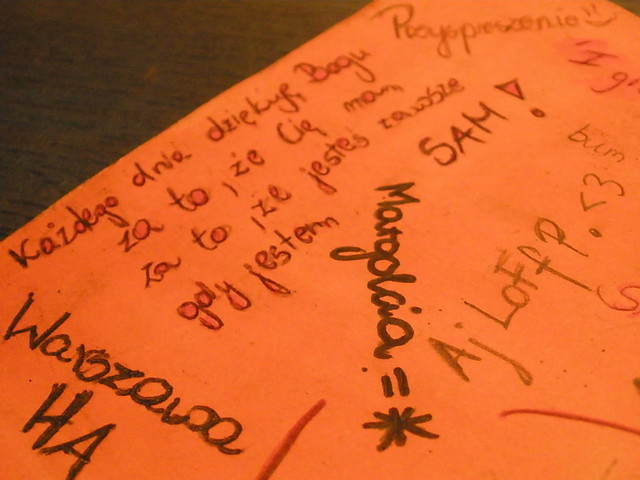 Przyspieszenie
Każdego dnia dziękuję Bogu
za to, że Cię mam
za to, że jesteś zawsze
gdy jestem
SAM!
bum
<3
Aj LoFF
Margolcia =*
Warszawa
HA